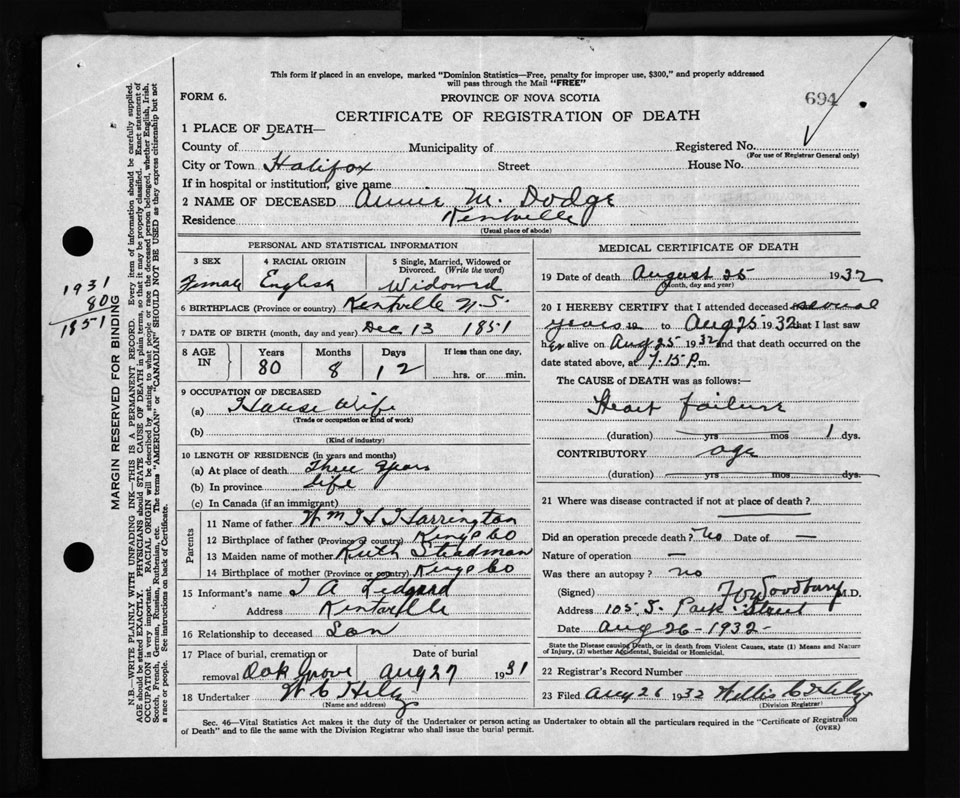 This form if placed in an envelope, marked "Dominion Statistics—Free, penalty for improper use, $300," and properly addressed
will pass through the Mail "FREE"
FORM 6.
PROVINCE OF NOVA SCOTIA
694
CERTIFICATE OF REGISTRATION OF DEATH
1 PLACE OF DEATH—
County of Municipality of Registered No.
(For use of Registrar General only)
City or Town Halifax Street House No.
If in hospital or institution, give name
2 NAME OF DECEASED Annie M. Dodge
Residence Kentville
(Usual place of abode)
PERSONAL AND STATISTICAL INFORMATION
3 SEX 4 RACIAL ORIGIN 5 Single, Married, Widowed or
Divorced. (Write the word)
Female English Widowed
6 BIRTHPLACE (Province or country) Kentville N.S.
7 DATE OF BIRTH (month, day and year) Dec 13 1851
8 AGE IN Years Months Days If less than one day,
80 8 12 hrs. or min.
9 OCCUPATION OF DECEASED
(a) House Wife
(Trade or occupation or kind of work)
(b)
(Kind of industry)
10 LENGTH OF RESIDENCE (in years and months)
(a) At place of death Three years
(b) In province Life
(c) In Canada (if an immigrant)
Parents
11 Name of father Wm H Harrington
12 Birthplace of father (Province or country) Kings Co
13 Maiden name of mother Ruth Steadman
14 Birthplace of mother (Province or country) Kings Co
15 Informant's name
Address Kentville
16 Relationship to deceased Son
17 Place of burial, cremation or Date of burial
removal Oak Grove Aug 27 1931
18 Undertaker W C Hiltz
(Name and address)
MEDICAL CERTIFICATE OF DEATH
19 Date of death August 25 1932
(Month, day and year)
20 I HEREBY CERTIFY that I attended deceased several
years to Aug 25 1932 that I last saw
her alive on Aug 25 1932 and that death occurred on the
date stated above, at 7.15 P.m.
The CAUSE OF DEATH was as follows:—
Heart Failure
(duration) yrs mos 1 dys.
CONTRIBUTORY age
(duration) yrs mos dys.
21 Where was disease contracted if not at place of death?
Did an operation precede death? No Date of —
Nature of operation —
Was there an autopsy? no
(Signed) Woodbury M.D.
Address 105 S. Park Street
Date Aug 26-1932-
State the Disease causing Death, or in death from Violent Causes, state (1) Means and Nature
of Injury, (2) whether Accidental, Suicidal or Homicidal.
22 Registrar's Record Number
23 Filed Aug 26 1932 Willis C Hiltz
(Division Registrar)
Sec. 46—Vital Statistics Act makes it the duty of the Undertaker or person acting as Undertaker to obtain all the particulars required in the "Certificate of Registration
of Death" and to file the same with the Division Registrar who shall issue the burial permit. (OVER)
1931
80
1851
MARGIN RESERVED FOR BINDING
N.B.—WRITE PLAINLY WITH UNFADING INK—THIS IS A PERMANENT RECORD. Every item of information should be carefully supplied.
AGE should be stated EXACTLY. PHYSICIANS should STATE CAUSE OF DEATH in plain terms, so that it may be properly classified. Exact statement of
OCCUPATION is very important. RACIAL ORIGIN will be described by stating to what people or race the deceased person belonged, whether English, Irish,
Scotch, French, German, Russian, Ruthenian, etc. The terms "AMERICAN" or "CANADIAN" SHOULD NOT BE USED as they express citizenship but not
a race or people. See instructions on back of Certificate.